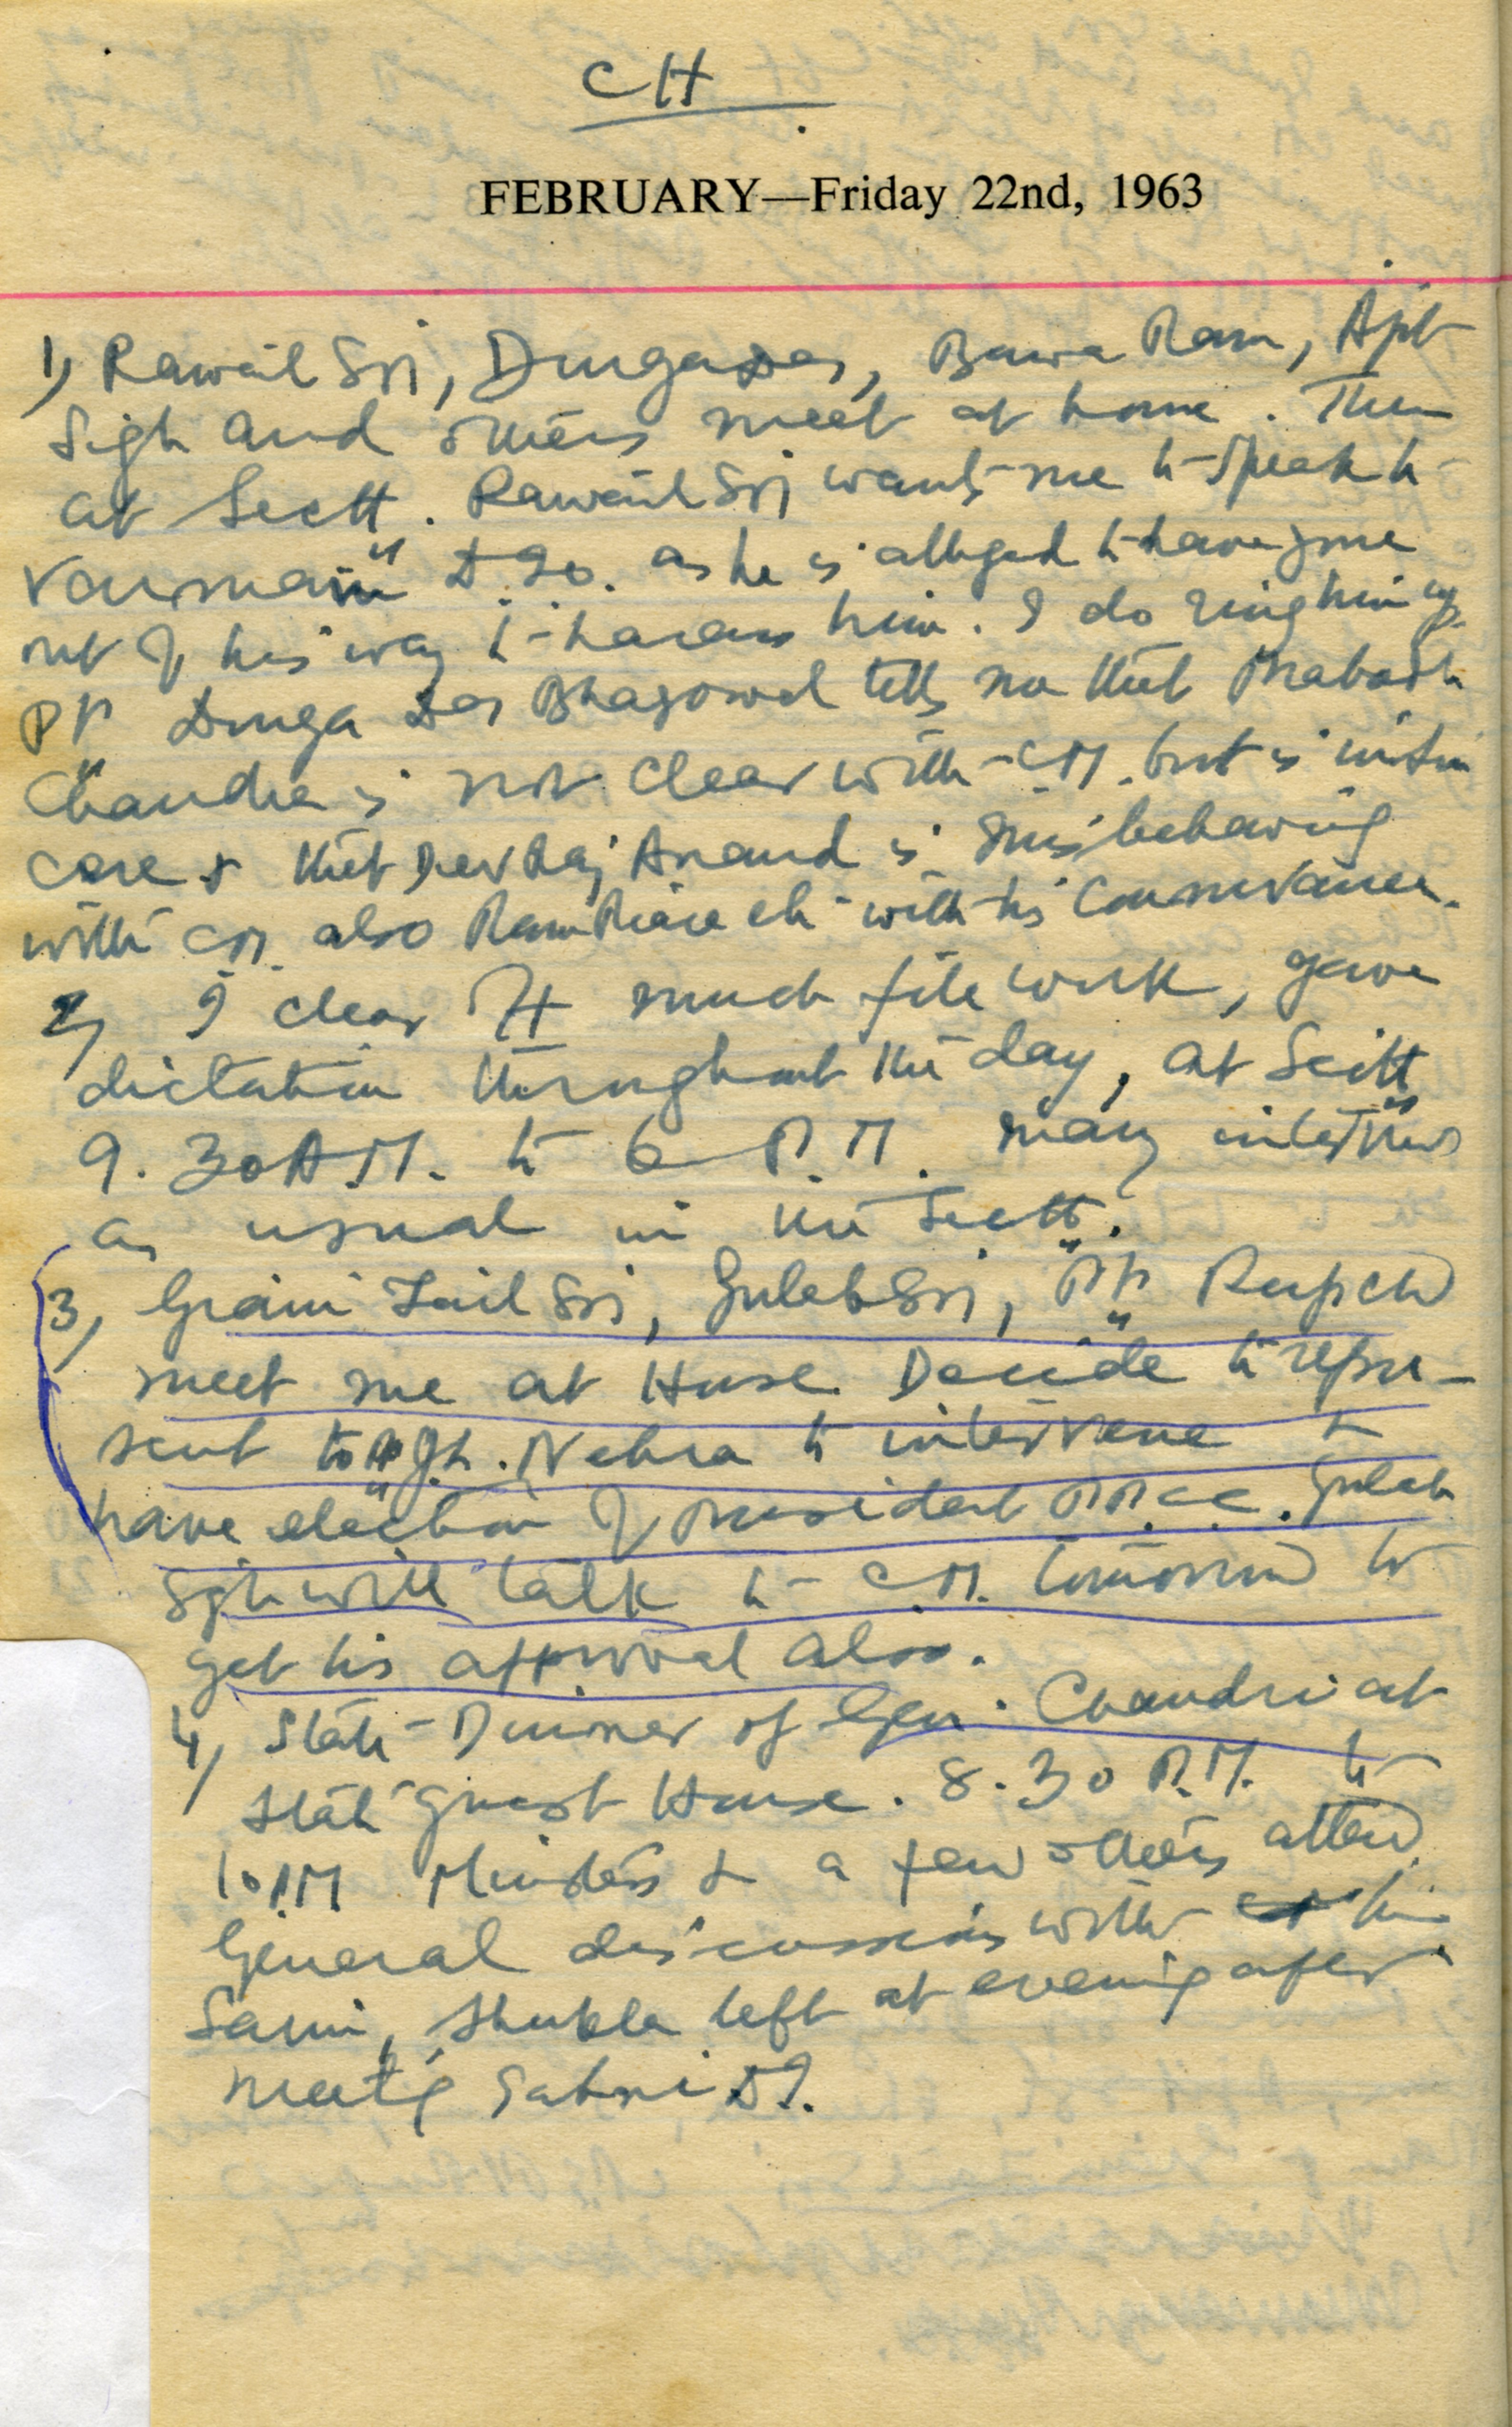 CH
FEBRUARY—Friday 22nd, 1963
1) Rawail Sgj, Durgadas, Bawa Ram, Ajit
Sigh and others meet at home. Then
at Sectt. Rawail Sgj wants me to speak to
D.I.G. as he is alleged to have gone
out of his way to harass him. I do ring him up.
Pt. Durga Das Bhagowal tells me that Prabodh
Chandra is not clear with C.M. but is
case & that Dev Raj Anand is misbehaving
with CM. also Ram Piara ch with his connivance.
2) I clear off much file work, gave
dictation throughout the day, at Sectt
9.30 A.M. to 6 P.M. many interviews
as usual in the Sectt.
3) Griani Zail Sgj, Gulab Sgj, Pt. Rup ch
meet me at House. Decide to repre-
sent to Pt. Jh. Nehru to intervene to
have election of President P.P.C.C. Gulab
Sgh will talk to C.M. tomorrow to
get his approval also.
4) State Dinner of Gen. Chaudri at
State Guest House. 8.30 P.M. to
10 PM Ministers & a few others attend.
General discussions with him
Saini, Shukla left at evening after
meetig Sahni D.I.